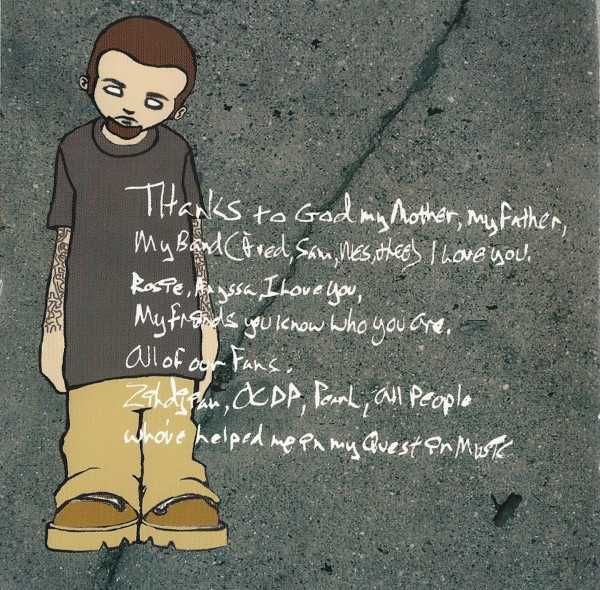 THanks to God my Mother, my Father,
My Band (Fred, Sam, Wes, Lethal) I Love you.
Rosie, Anyssa, I Love you,
My friends you know who you are.
All of our Fans.
Zildjian, OCDP, Pearl, all People
who've helped me in my Quest in Music